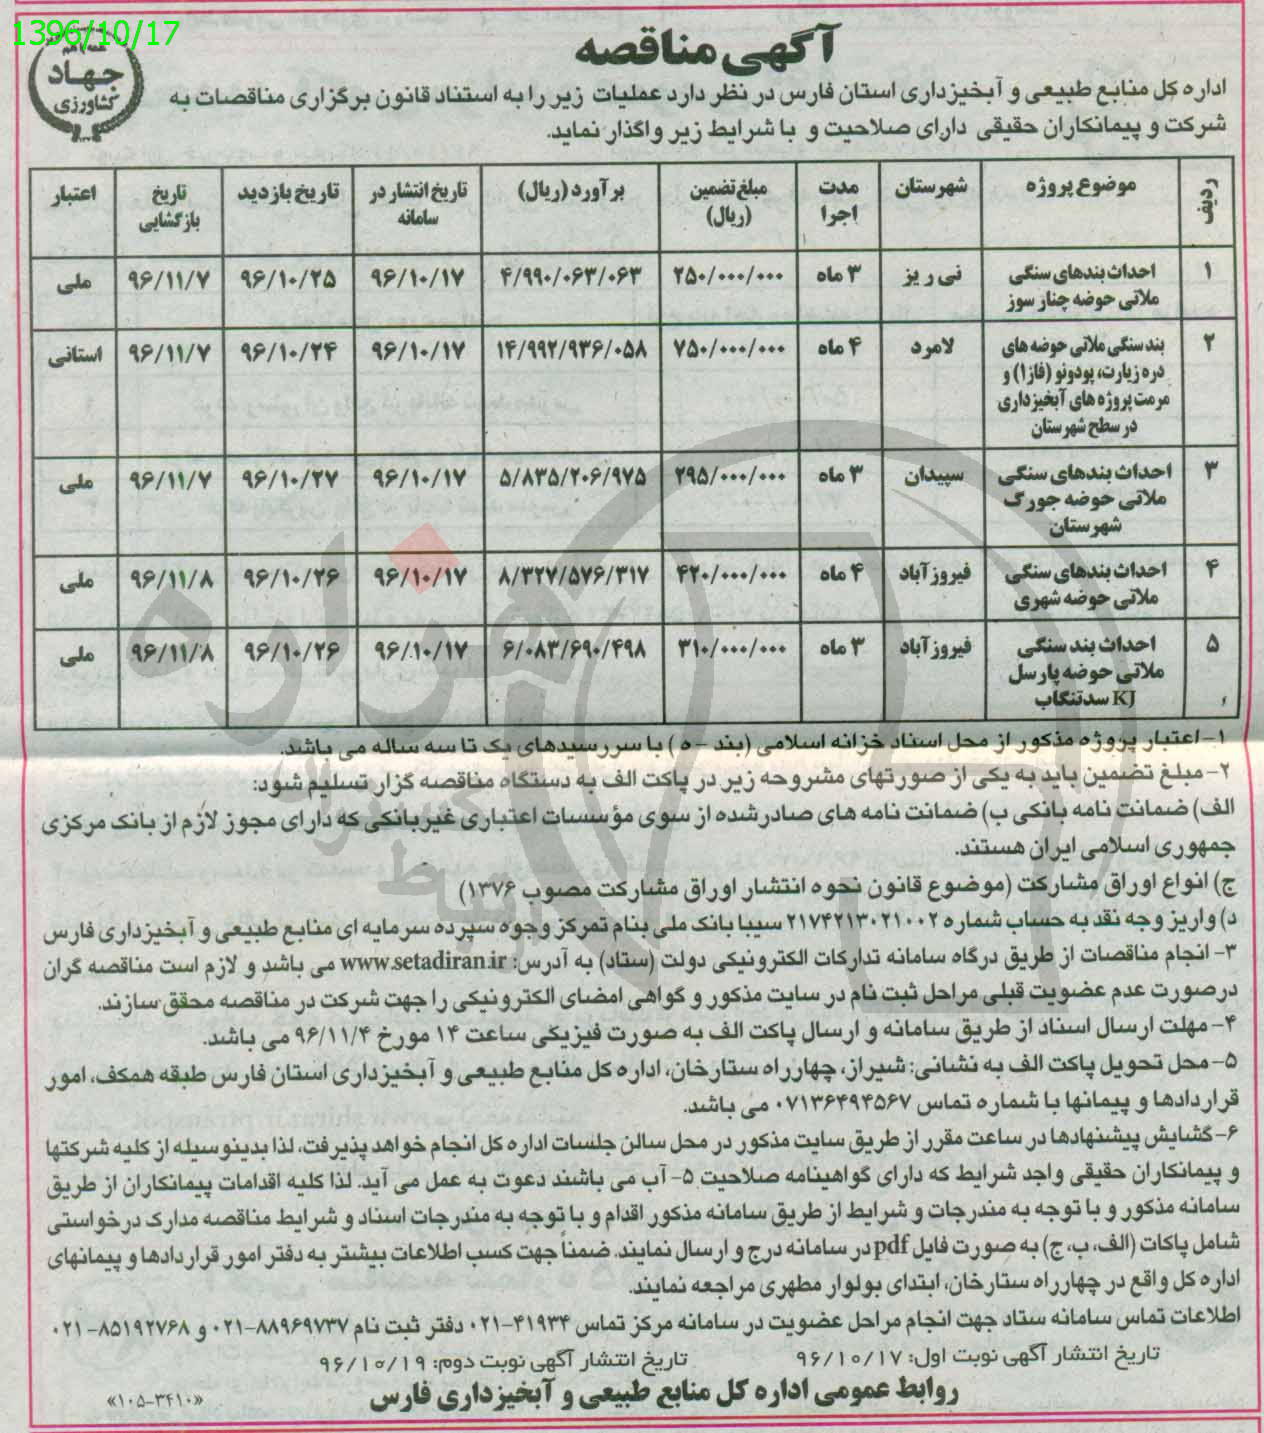 1396/10/17
جهاد
کشاورزی
آگهی مناقصه
اداره کل منابع طبیعی و آبخیزداری استان فارس در نظر دارد عملیات زیر را به استناد قانون برگزاری مناقصات به
شرکت و پیمانکاران حقیقی دارای صلاحیت و با شرایط زیر واگذار نماید.
ردیف موضوع پروژه شهرستان مدت اجرا مبلغ تضمین (ریال) برآورد (ریال) تاریخ انتشار در سامانه تاریخ بازدید تاریخ بازگشایی اعتبار
۱ احداث بندهای سنگی نی ریز ۳ ماه ۲۵۰/۰۰۰/۰۰۰ ۴/۹۹۰/۰۶۳/۰۶۳ ۹۶/۱۰/۱۷ ۹۶/۱۰/۲۵ ۹۶/۱۱/۷ ملی
ملاتی حوضه چنار سوز
۲ بند سنگی ملاتی حوضه های لامرد ۴ ماه ۷۵۰/۰۰۰/۰۰۰ ۱۴/۹۹۲/۹۳۶/۰۵۸ ۹۶/۱۰/۱۷ ۹۶/۱۰/۲۴ ۹۶/۱۱/۷ استانی
دره زیارت، پودونو (فاز۱) و
مرمت پروژه های آبخیزداری
در سطح شهرستان
۳ احداث بندهای سنگی سپیدان ۳ ماه ۲۹۵/۰۰۰/۰۰۰ ۵/۸۳۵/۲۰۶/۹۷۵ ۹۶/۱۰/۱۷ ۹۶/۱۰/۲۷ ۹۶/۱۱/۷ ملی
ملاتی حوضه جورگ
شهرستان
۴ احداث بندهای سنگی فیروزآباد ۴ ماه ۴۲۰/۰۰۰/۰۰۰ ۸/۳۲۷/۵۷۶/۳۱۷ ۹۶/۱۰/۱۷ ۹۶/۱۰/۲۶ ۹۶/۱۱/۸ ملی
ملاتی حوضه شهری
۵ احداث بند سنگی فیروزآباد ۳ ماه ۳۱۰/۰۰۰/۰۰۰ ۶/۰۸۳/۶۹۰/۴۹۸ ۹۶/۱۰/۱۷ ۹۶/۱۰/۲۶ ۹۶/۱۱/۸ ملی
ملاتی حوضه پارسل
KJ سدتنگاب
۱- اعتبار پروژه مذکور از محل اسناد خزانه اسلامی (بند - ه ) با سررسیدهای یک تا سه ساله می باشد.
۲- مبلغ تضمین باید به یکی از صورتهای مشروحه زیر در پاکت الف به دستگاه مناقصه گزار تسلیم شود:
الف) ضمانت نامه بانکی ب) ضمانت نامه های صادرشده از سوی مؤسسات اعتباری غیربانکی که دارای مجوز لازم از بانک مرکزی
جمهوری اسلامی ایران هستند.
ج) انواع اوراق مشارکت (موضوع قانون نحوه انتشار اوراق مشارکت مصوب ۱۳۷۶)
د) واریز وجه نقد به حساب شماره ۲۱۷۴۲۱۳۰۲۱۰۰۲ سیبا بانک ملی بنام تمرکز وجوه سپرده سرمایه ای منابع طبیعی و آبخیزداری فارس
۳- انجام مناقصات از طریق درگاه سامانه تدارکات الکترونیکی دولت (ستاد) به آدرس: www.setadiran.ir می باشد و لازم است مناقصه گران
درصورت عدم عضویت قبلی مراحل ثبت نام در سایت مذکور و گواهی امضای الکترونیکی را جهت شرکت در مناقصه محقق سازند.
۴- مهلت ارسال اسناد از طریق سامانه و ارسال پاکت الف به صورت فیزیکی ساعت ۱۴ مورخ ۹۶/۱۱/۴ می باشد.
۵- محل تحویل پاکت الف به نشانی: شیراز، چهارراه ستارخان، اداره کل منابع طبیعی و آبخیزداری استان فارس طبقه همکف، امور
قراردادها و پیمانها با شماره تماس ۰۷۱۳۶۴۹۴۵۶۷ می باشد.
۶- گشایش پیشنهادها در ساعت مقرر از طریق سایت مذکور در محل سالن جلسات اداره کل انجام خواهد پذیرفت، لذا بدینوسیله از کلیه شرکتها
و پیمانکاران حقیقی واجد شرایط که دارای گواهینامه صلاحیت ۵- آب می باشند دعوت به عمل می آید. لذا کلیه اقدامات پیمانکاران از طریق
سامانه مذکور و با توجه به مندرجات و شرایط از طریق سامانه مذکور اقدام و با توجه به مندرجات اسناد و شرایط مناقصه مدارک درخواستی
شامل پاکات (الف، ب، ج) به صورت فایل pdf در سامانه درج و ارسال نمایند. ضمناً جهت کسب اطلاعات بیشتر به دفتر امور قراردادها و پیمانهای
اداره کل واقع در چهارراه ستارخان، ابتدای بولوار مطهری مراجعه نمایند.
اطلاعات تماس سامانه ستاد جهت انجام مراحل عضویت در سامانه مرکز تماس ۴۱۹۳۴-۰۲۱ دفتر ثبت نام ۸۸۹۶۹۷۳۷-۰۲۱ و ۸۵۱۹۲۷۶۸-۰۲۱
تاریخ انتشار آگهی نوبت اول: ۹۶/۱۰/۱۷ تاریخ انتشار آگهی نوبت دوم: ۹۶/۱۰/۱۹
روابط عمومی اداره کل منابع طبیعی و آبخیزداری فارس
«۱۰۵-۳۴۱۰»
هزاره